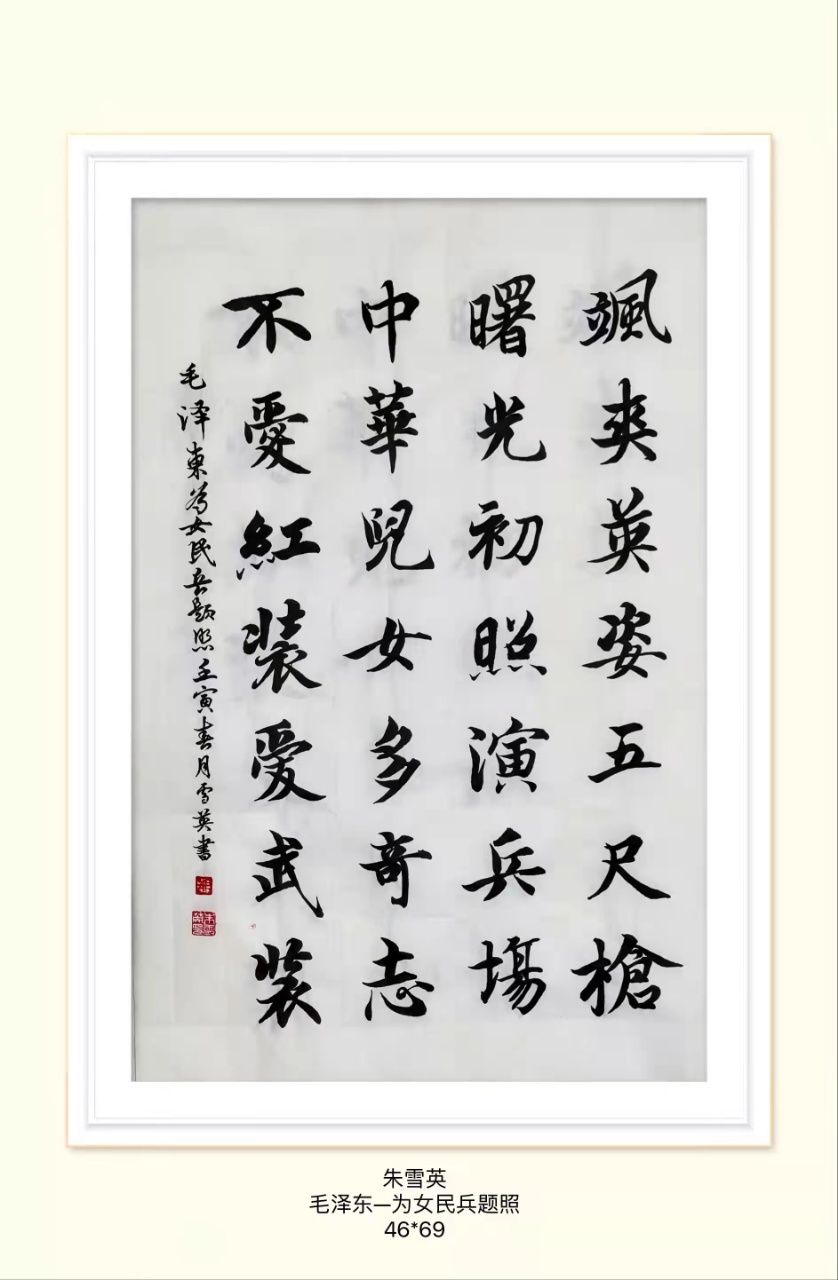 颯爽英姿五尺槍
曙光初照演兵場
中華兒女多奇志
不愛紅装愛武装
毛泽東为女民兵题照壬寅春月雪英書
朱雪英
毛泽东—为女民兵题照
46*69